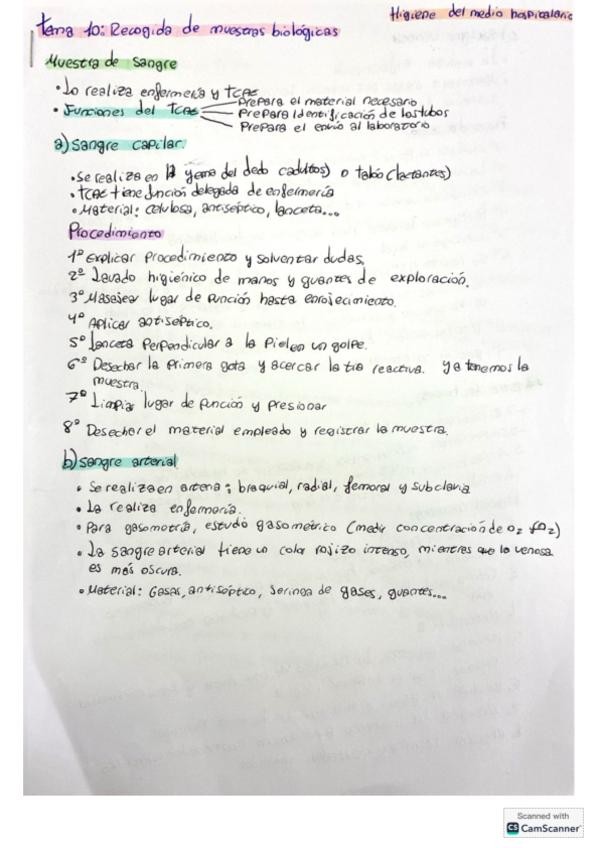 Higiene del medio hospitalario
Tema 10: Recogida de muestras biológicas
Muestra de sangre
• Lo realiza enfermería y TCAE
• Funciones del TCAE — Prepara el material necesario
Prepara identificación de los tubos
Prepara el envío al laboratorio
a) Sangre capilar.
• Se realiza en la yema del dedo (adultos) o talón (lactantes)
• TCAE tiene función delegada de enfermería
• Material: celulosa, antiséptico, lanceta...
Procedimiento
1º Explicar procedimiento y solventar dudas.
2º Lavado higiénico de manos y guantes de exploración.
3º Masajear lugar de punción hasta enrojecimiento.
4º Aplicar antiséptico.
5º Lanceta perpendicular a la piel en un golpe.
6º Desechar la primera gota y acercar la tira reactiva. Ya tenemos la
muestra.
7º Limpiar lugar de punción y presionar
8º Desechar el material empleado y registrar la muestra.
b) Sangre arterial
• Se realiza en arteria; braquial, radial, femoral y subclavia
• La realiza enfermería.
• Para gasometría, estudio gasométrico (medir concentración de O2
• La sangre arterial tiene un color rojizo intenso, mientras que la venosa
es más oscura.
• Material: Gasas, antiséptico, jeringa de gases, guantes...
Scanned with
CS CamScanner